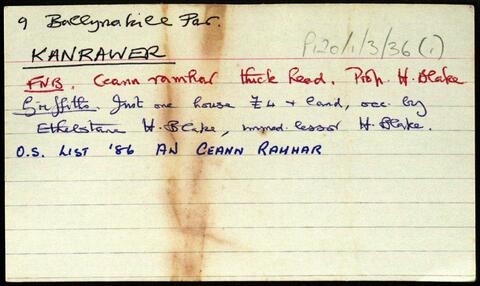 9 Ballynakill Par.
KANRAWER
P120/1/3/36 (1)
FNB. Ceann ramhar thick head. Prop. H. Blake
Griffiths. Just one house £4 + land, occ. by
Ethelstane H. Blake, immed. lessor H. Blake.
O.S. LIST '86 AN CEANN RAMHAR